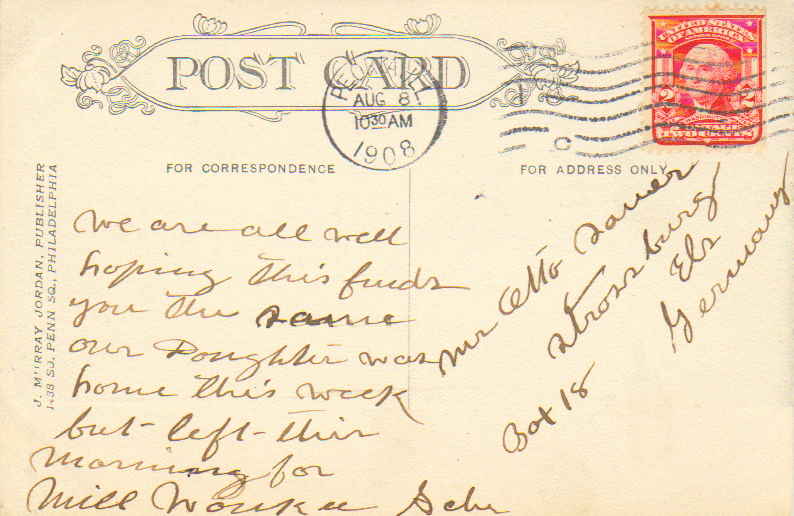 POST CARD
AUG 8
10 30 AM
1908
UNITED STATES
OF AMERICA
2 2
TWO CENTS
FOR CORRESPONDENCE
FOR ADDRESS ONLY
J. MURRAY JORDAN, PUBLISHER
1438 SO. PENN SQ., PHILADELPHIA
we are all well
hoping this finds
you the same
our Doughter was
home this week
but left this
morning for
Mill Woukee
Mr Otto Sauer
Strossburg
Els
Germany
Box 18